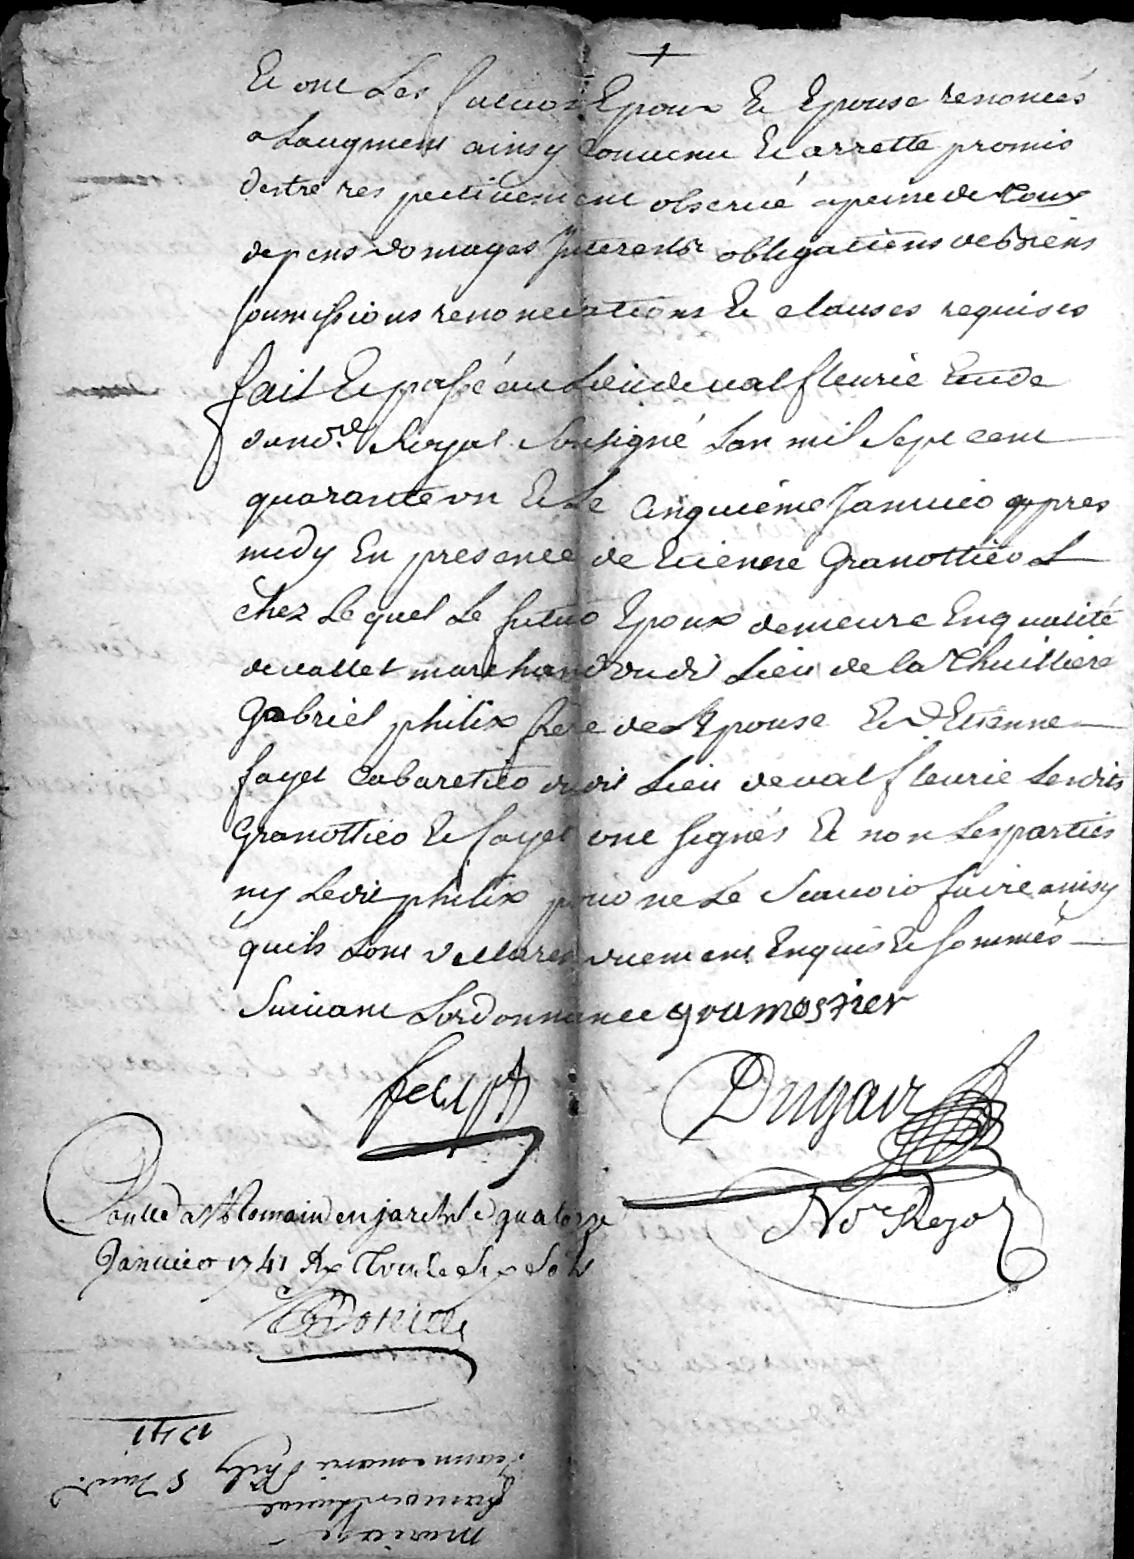 Et ont Les futurs Epoux Et Epouse renoncés
a Laugment ainsy Convenu Et arretté promis
destre respectivement observé a peine de tous
depens domages Interests obligations de biens
soumissions renonciations Et clauses requises
fait Et passé au Lieu de valfleurie Etude
du no.re Royal soussigné Lan mil sept cent
quarante un Et Le cinquième Janvier apres
midy En presence de Etienne Granottier
chez Lequel Le futur Epoux demeure En qualité
de vallet marchand dudit Lieu de la Thuilliere
Gabriel philix frere de L Epouse Et d Etienne
fayet Cabaretier dudit Lieu de valfleurie Lesdits
Granottier Et fayet ont signés Et non Les parties
ny Ledit philix pour ne Le Scavoir faire ainsy
quils Lont declaré Enquis Et sommés
Suivant Lordonnance
Dugair
No.re Royal
Conlle a St Romain en jarest le quatorze
Janvier 1741 Rx Trente six sols
mariage
Jeanne marie Phily 5 Janv.
1741